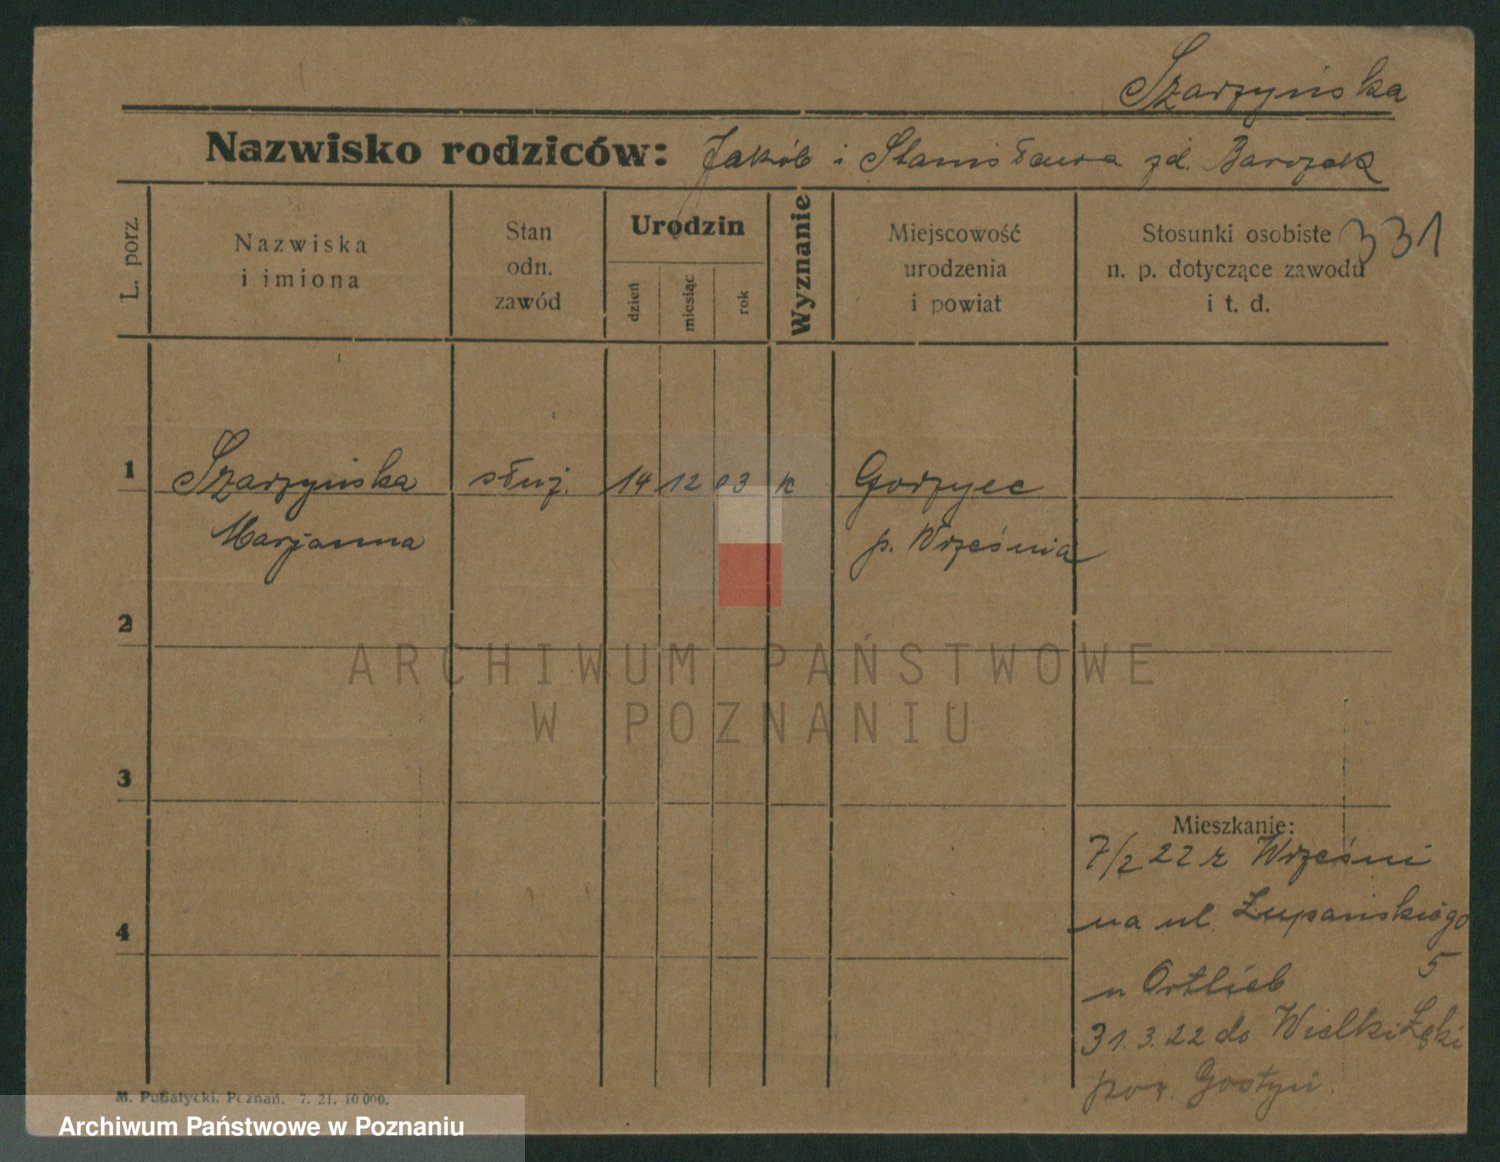 Szarzyńska
Nazwisko rodziców: Jakób i Stanisława zd. Barczak
331
L. porz.
Nazwiska
i imiona
Stan
odn.
zawód
Urodzin
dzień
miesiąc
rok
Wyznanie
Miejscowość
urodzenia
i powiat
Stosunki osobiste
n. p. dotyczące zawodu
i t. d.
1 Szarzyńska służ. 14 12 03 k Gorzyec
Marjanna p. Września
2
3
4
Mieszkanie:
7/2 22 z Wrześni
na ul. Żupańskiego
5
u Ortlieb
31.3.22 do Wielki Łęki
pow. Gostyń.
ARCHIWUM PAŃSTWOWE
W POZNANIU
M. Putiatycki, Poznań. 7. 21. 10 000.
Archiwum Państwowe w Poznaniu